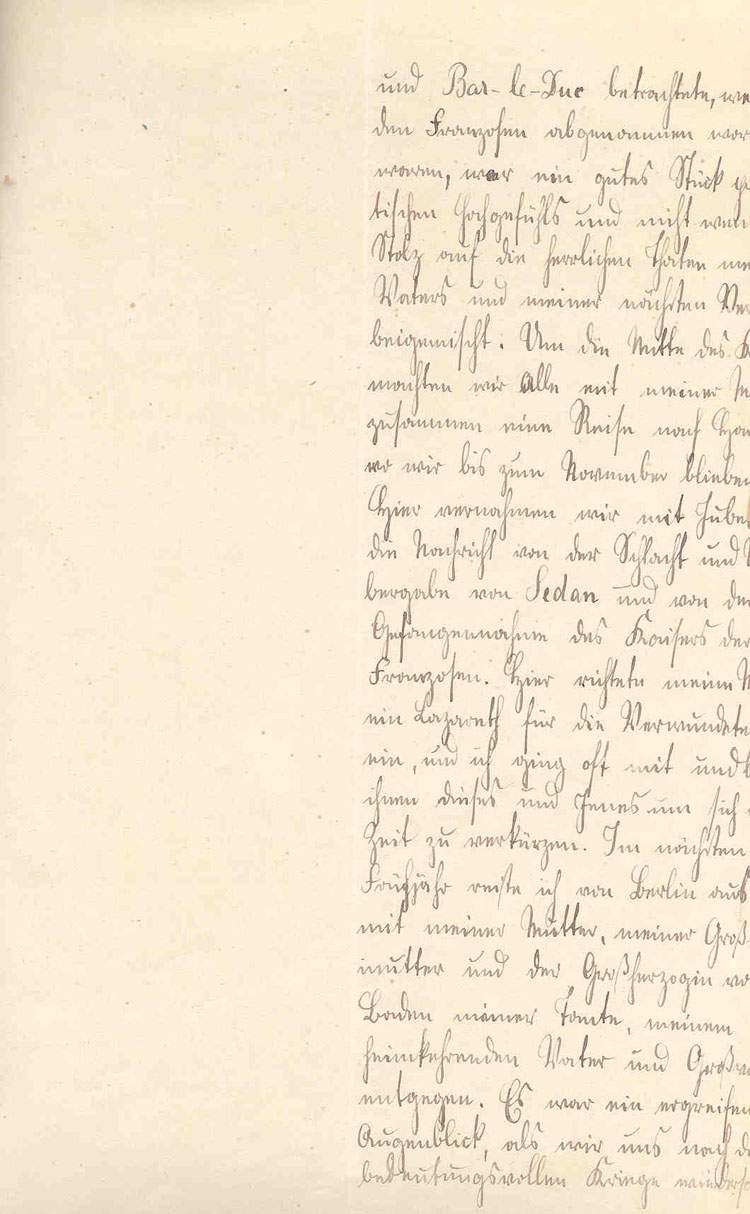 und Bar-le-Duc betrachtete, we
den Franzosen abgenommen wor
waren, war ein gutes Stück p
tischen Hochgefühls und nicht wen
Stolz auf die herrlichen Thaten me
Vaters und meiner nächsten Ver
beigemischt. Um die Mitte des K
machten wir Alle mit meiner M
zusammen eine Reise nach Hom
wo wir bis zum November blieben
Hier vernahmen wir mit Jubel
die Nachricht von der Schlacht und
bergabe von Sedan und von der
Gefangennahme des Kaisers der
Franzosen. Hier richtete meine M
ein Lazareth für die Verwundete
ein, und ich ging oft mit und
ihnen dieses und Jenes um sich
Zeit zu verkürzen. Im nächsten
Frühjahr reiste ich von Berlin aus
mit meiner Mutter, meiner Groß-
mutter und der Großherzogin vo
Baden meiner Tante, meinem
heimkehrenden Vater und Großv
entgegen. Es war ein ergreifen
Augenblick, als wir uns nach de
bedeutungsvollen Kriege wiederse